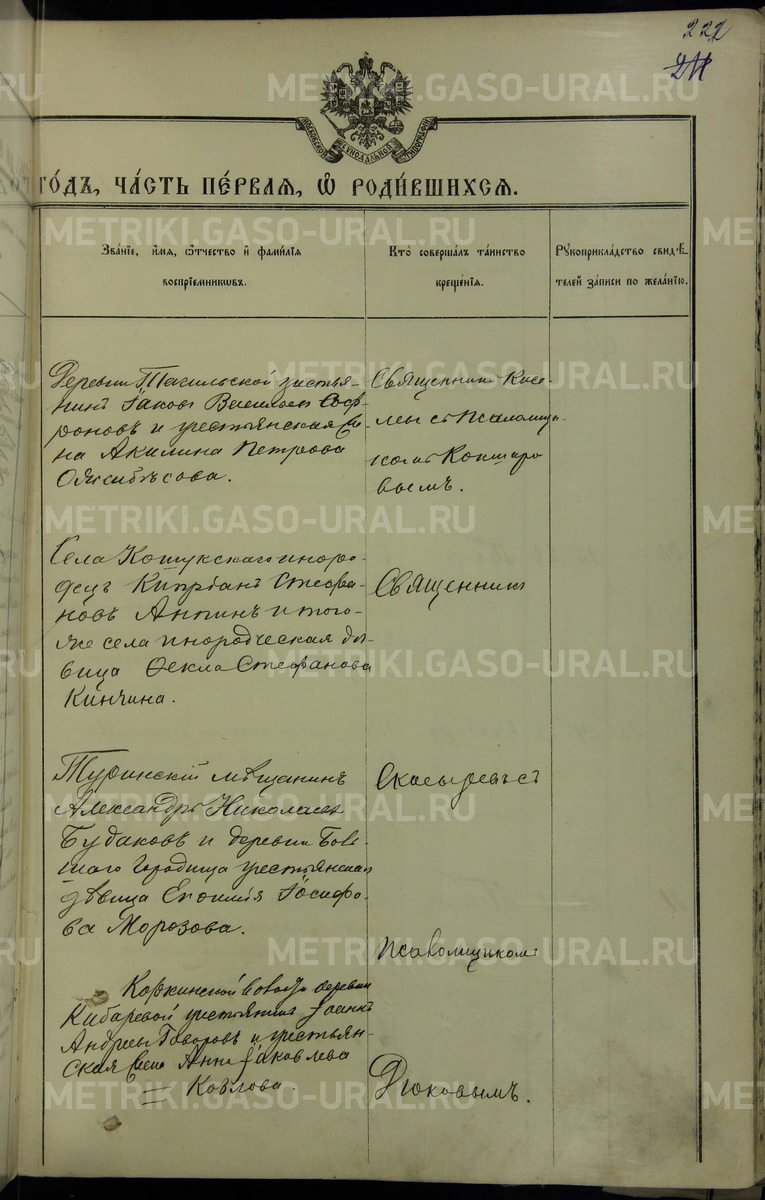 222
METRIKI.GASO-URAL.RU
МОСКОВСКОЙ СѴНОДАЛЬНОЙ ТИПОГРАФІИ
ГО́ДЪ, ЧА́СТЬ ПЕ́РВАЯ, Ѡ҆ РОДИ́ВШИХСЯ.
Зва́ніе, и҆́мя, ѻ҆́тчество и҆ фами́лія
воспріе́мникѡвъ.
Кто̀ соверша́лъ та́инство
креще́нія.
Рꙋкоприкла́дство свидѣ́-
телей за́писи по жела́нію.
Деревни Тагильской крестья-
нинъ Іаковъ Васильевъ Соф-
роновъ и крестьянская же-
на Акилина Петрова
Священникъ
съ псаломщи-
комъ
вымъ.
Села Кошукскаго иноро-
децъ Кипріанъ Стефа-
новъ Анпинъ и того-
же села инородческая дѣ-
вица Ѳекла Стефанова
Кинчина.
Священникъ
Туринскій мѣщанинъ
Александръ Николаевъ
Будаковъ и деревни Боль-
шаго Городища крестьянская
дѣвица Евфимія Іосифо-
ва Морозова.
Скосыревъ съ
псаломщикомъ
Коркинской волости деревни
Кибаревой крестьянинъ Іоаннъ
Андреевъ Говоровъ и крестьян-
ская жена Анна Іаковлева
Козлова.
Дюковымъ.